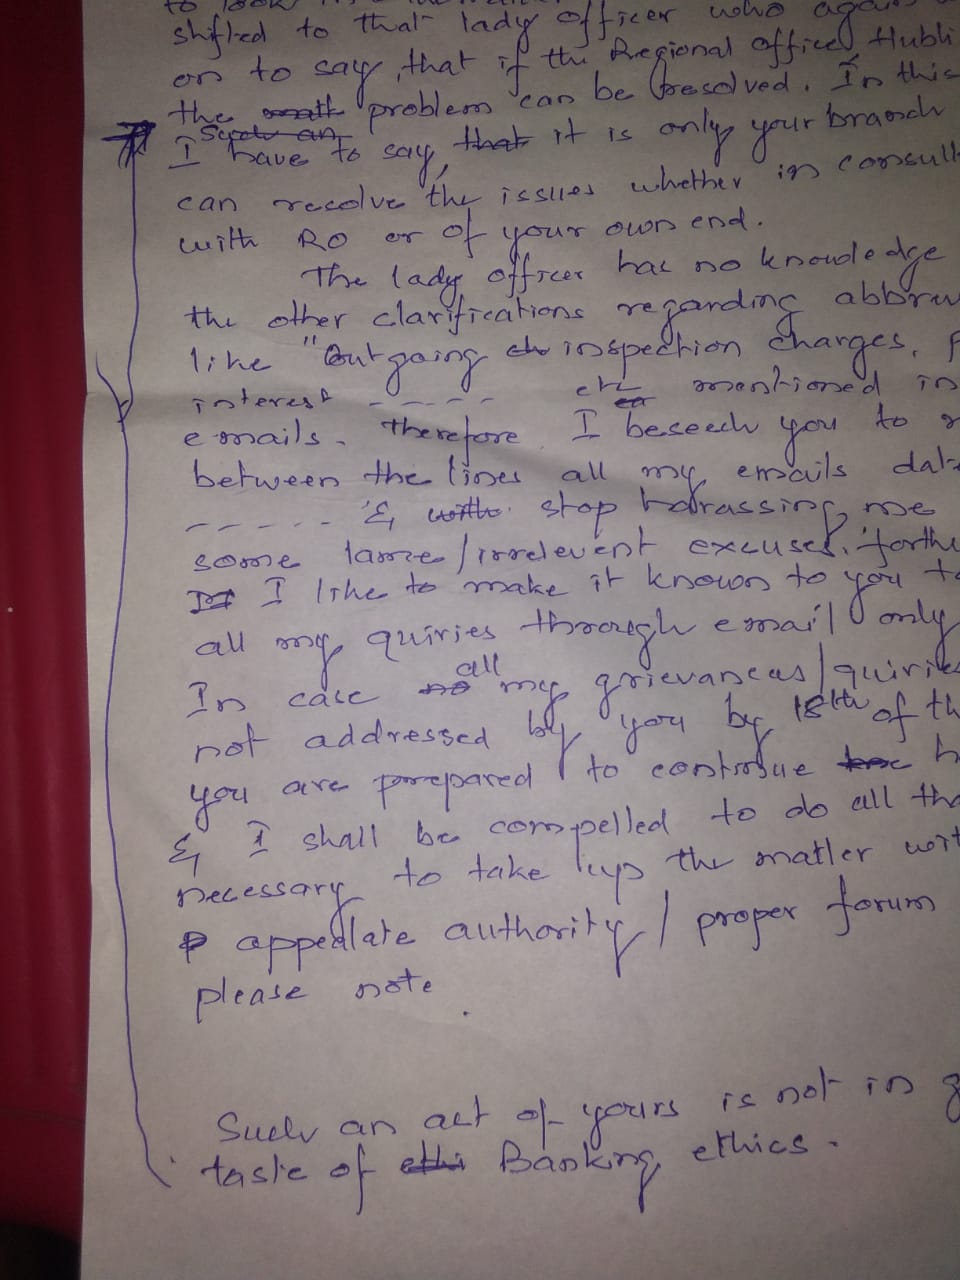 to look
shifted to that lady officer who again
on to say, that if the Regional office Hubli
the problem can be resolved. In this
I have to say, that it is only your branch
Such an
can resolve the issues whether in consult
with RO or of your own end.
The lady officer has no knowledge
the other clarifications regarding abbrev
like "Out going inspection charges,
interest ----- etc mentioned in
emails. Therefore I beseech you to
between the lines all my emails dat
------ & with stop harassing me
some lame/irrelevent excuses. forthe
I like to make it known to you to
all my quiries through email only
In case all my grievances/quiries
not addressed by you by 18th of th
you are prepared to continue
& I shall be compelled to do all tha
necessary to take up the matler wit
appeallate authority/ proper forum
please note.
Such an act of yours is not in g
taste of ethi Banking ethics.